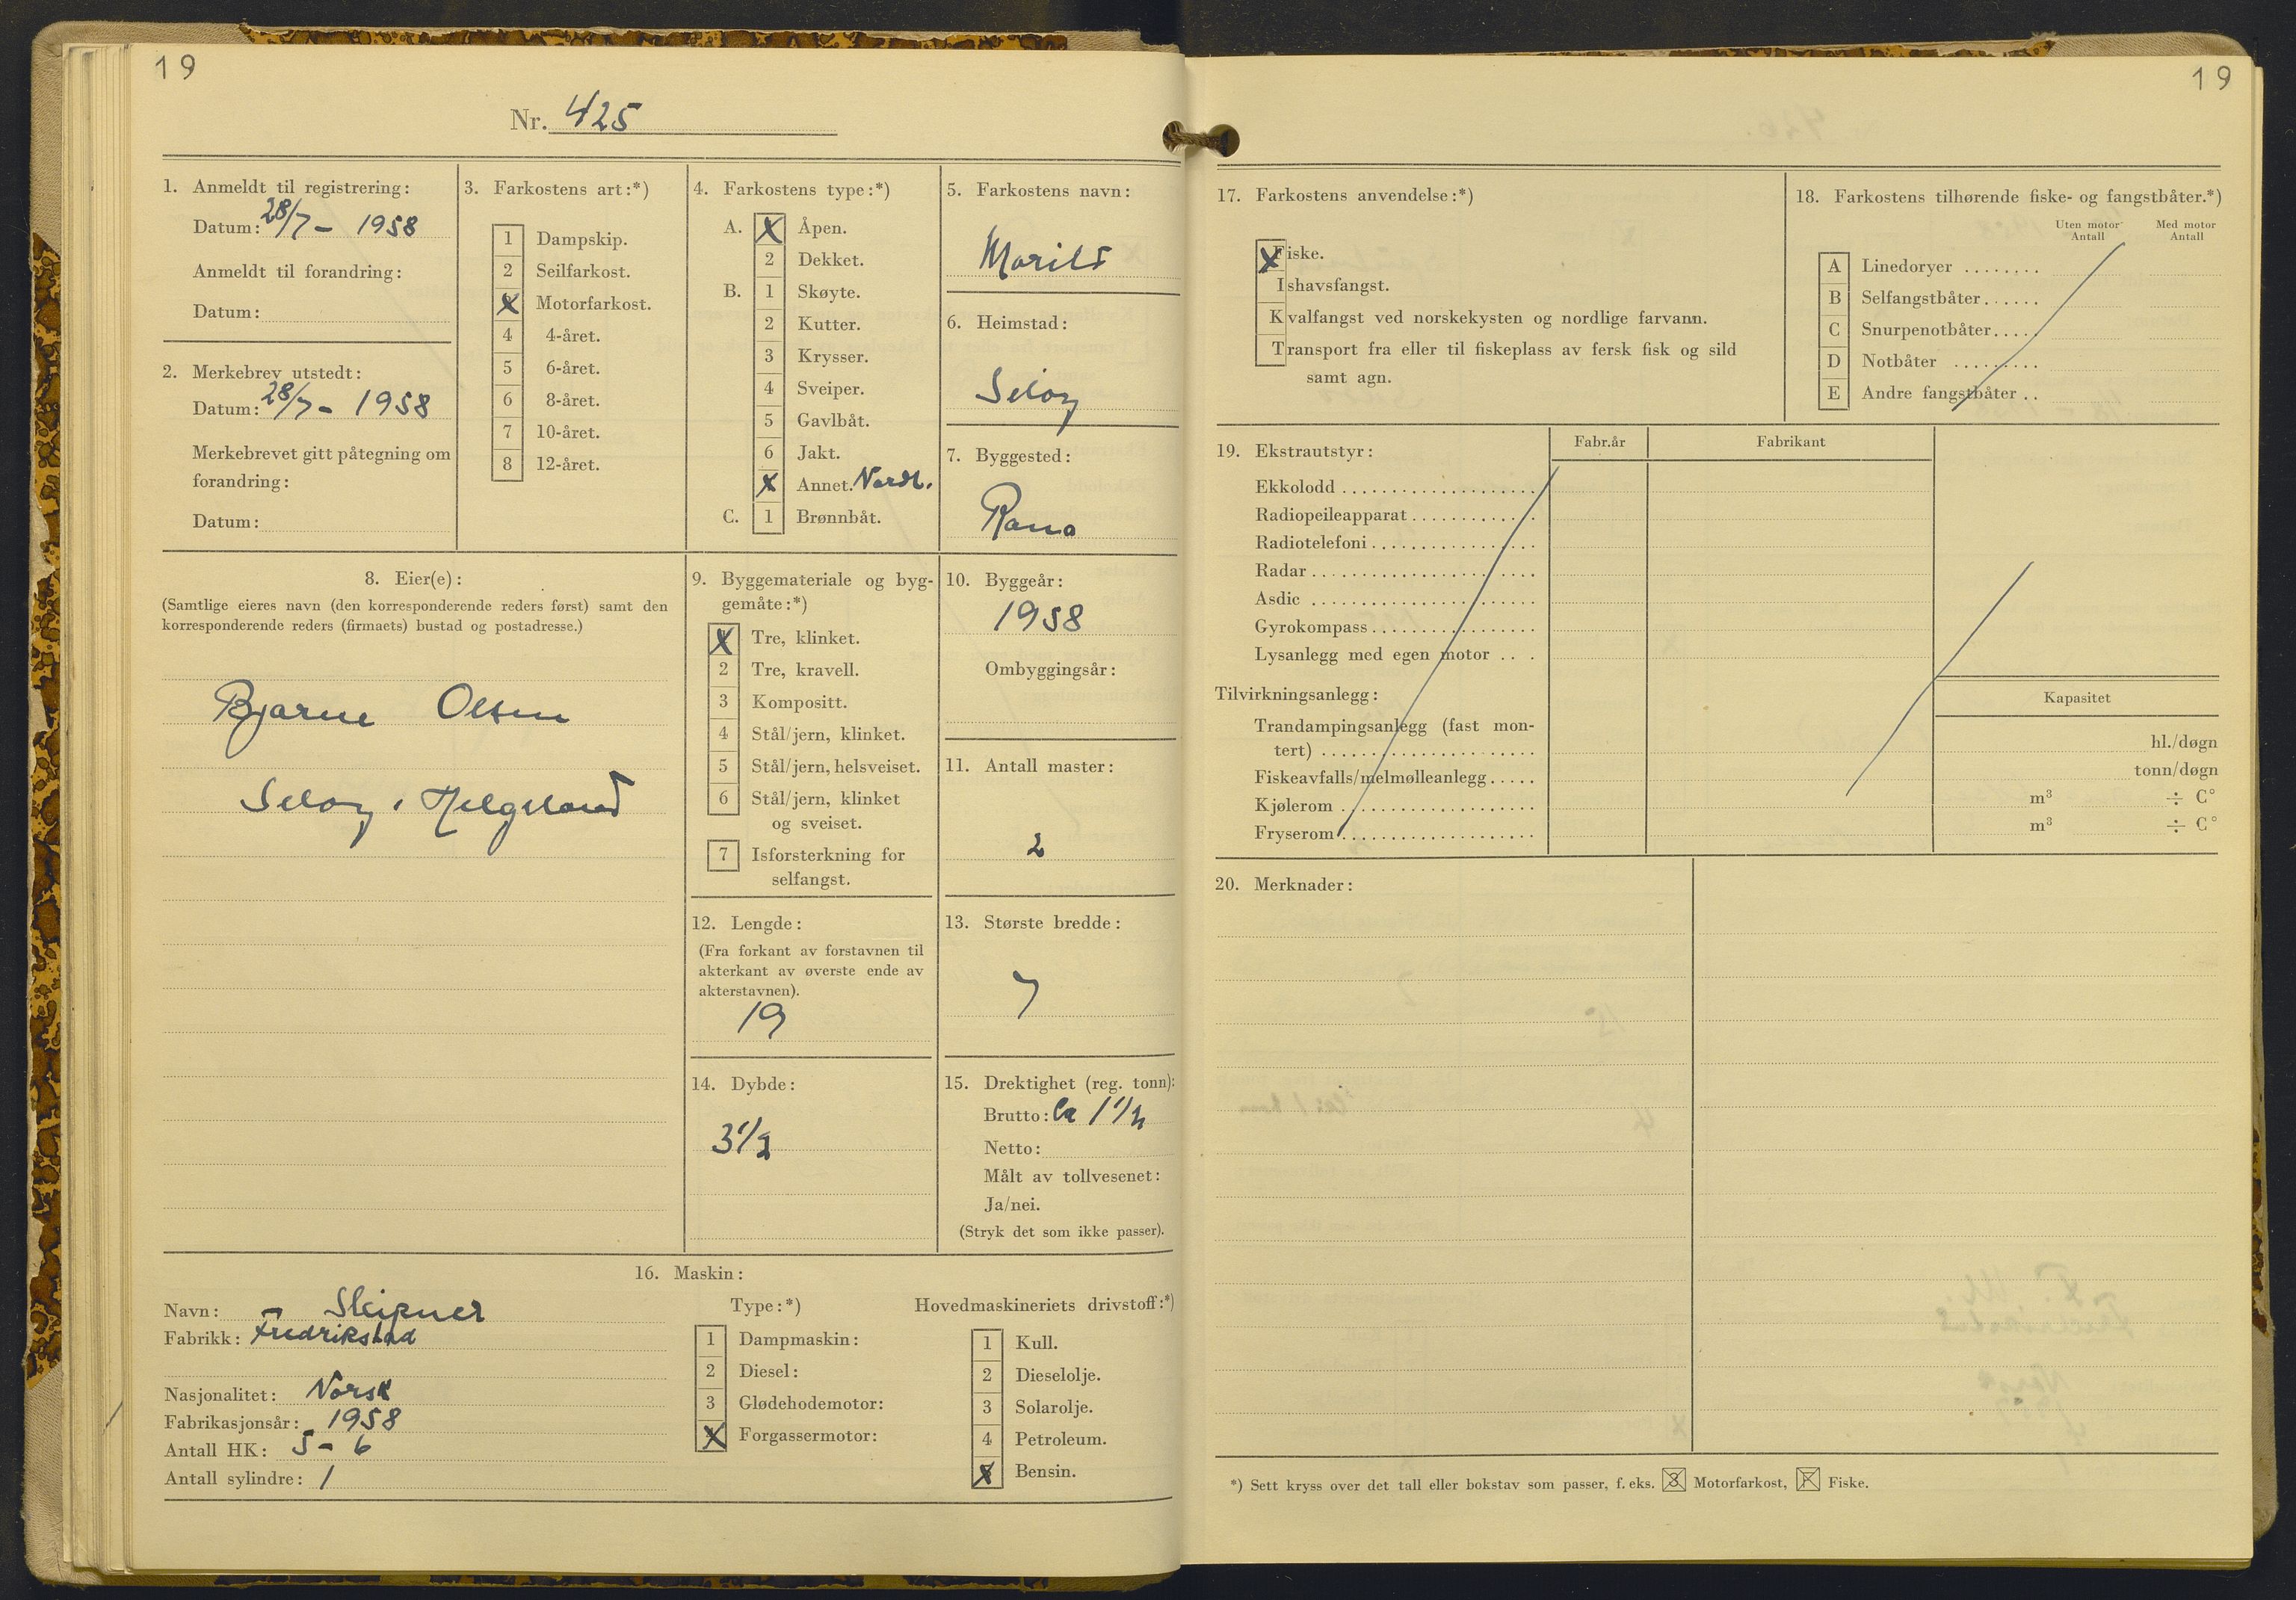 19
Nr. 425
1. Anmeldt til registrering:
Datum: 28/7 - 1958
Anmeldt til forandring:
Datum:
2. Merkebrev utstedt:
Datum: 28/7 - 1958
Merkebrevet gitt påtegning om
forandring:
Datum:
3. Farkostens art:*)
1 Dampskip.
2 Seilfarkost.
X Motorfarkost.
4 4-året.
5 6-året.
6 8-året.
7 10-året.
8 12-året.
4. Farkostens type:*)
A. X Åpen.
2 Dekket.
B. 1 Skøyte.
2 Kutter.
3 Krysser.
4 Sveiper.
5 Gavlbåt.
6 Jakt.
X Annet. Nordl.
C. 1 Brønnbåt.
5. Farkostens navn:
Morild
6. Heimstad:
Seløy
7. Byggested:
Rana
8. Eier(e):
(Samtlige eieres navn (den korresponderende reders først) samt den
korresponderende reders (firmaets) bustad og postadresse.)
Bjarne Olsen
Seløy i Helgeland
9. Byggemateriale og byg-
gemåte:*)
X Tre, klinket.
2 Tre, kravell.
3 Kompositt.
4 Stål/jern, klinket.
5 Stål/jern, helsveiset.
6 Stål/jern, klinket
og sveiset.
7 Isforsterkning for
selfangst.
10. Byggeår:
1958
Ombyggingsår:
11. Antall master:
2
12. Lengde:
(Fra forkant av forstavnen til
akterkant av øverste ende av
akterstavnen).
19
13. Største bredde:
7
14. Dybde:
3 1/2
15. Drektighet (reg. tonn):
Brutto: Ca 1 1/2
Netto:
Målt av tollvesenet:
Ja/nei.
(Stryk det som ikke passer).
16. Maskin:
Navn: Sleipner
Fabrikk: Fredrikstad
Nasjonalitet: Norsk
Fabrikasjonsår: 1958
Antall HK: 5 - 6
Antall sylindre: 1
Type:*)
1 Dampmaskin:
2 Diesel:
3 Glødehodemotor:
X Forgassermotor:
Hovedmaskineriets drivstoff:*)
1 Kull.
2 Dieselolje.
3 Solarolje.
4 Petroleum.
X Bensin.
19
17. Farkostens anvendelse:*)
Fiske.
Ishavsfangst.
Kvalfangst ved norskekysten og nordlige farvann.
Transport fra eller til fiskeplass av fersk fisk og sild
samt agn.
18. Farkostens tilhørende fiske- og fangstbåter.*)
Uten motor Med motor
Antall Antall
A Linedoryer ........
B Selfangstbåter ......
C Snurpenotbåter .....
D Notbåter .........
E Andre fangstbåter ..
19. Ekstrautstyr:
Fabr.år Fabrikant
Ekkolodd
Radiopeileapparat
Radiotelefoni
Radar
Asdic
Gyrokompass
Lysanlegg med egen motor ...
Tilvirkningsanlegg:
Kapasitet
Trandampingsanlegg (fast mon-
tert) hl./døgn
Fiskeavfalls/melmølleanlegg ..... tonn/døgn
Kjølerom m³ ÷ C°
Fryserom m³ ÷ C°
20. Merknader:
*) Sett kryss over det tall eller bokstav som passer, f. eks. 3 Motorfarkost, F Fiske.